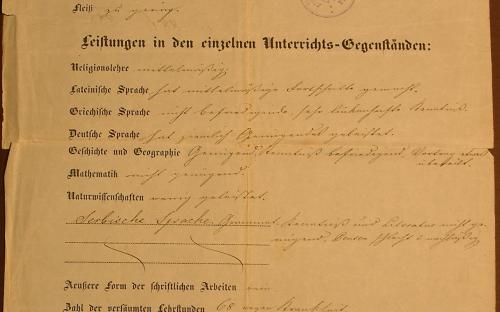 Fleiß zu gering.
Leistungen in den einzelnen Unterrichts-Gegenständen:
Religionslehre mittelmäßig
Lateinische Sprache hat mittelmäßige Fortschritte gemacht.
Griechische Sprache nicht befriedigende, sehr lückenhafte Kenntniß.
Deutsche Sprache hat ziemlich Genügendes geleistet.
Geschichte und Geographie Genügend, Kenntniß befriedigend, Vortrag
Mathematik nicht genügend.
Naturwissenschaften wenig geleistet.
Serbische Sprache Grammat. Kenntniß und Literatur nicht ge-
nügend, schlecht nachlässig
Aeußere Form der schriftlichen Arbeiten rein
Zahl der versäumten Lehrstunden 68 wegen Krankheit